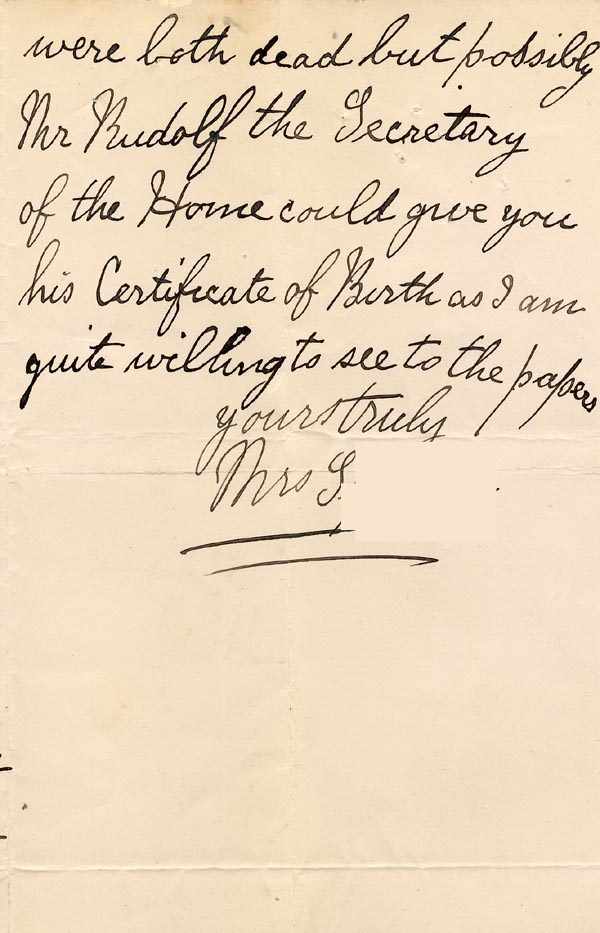 were both dead but possibly
Mr Rudolf the Secretary
of the Home could give you
his Certificate of Birth as I am
quite willing to see to the papers
yours truly
Mrs S.